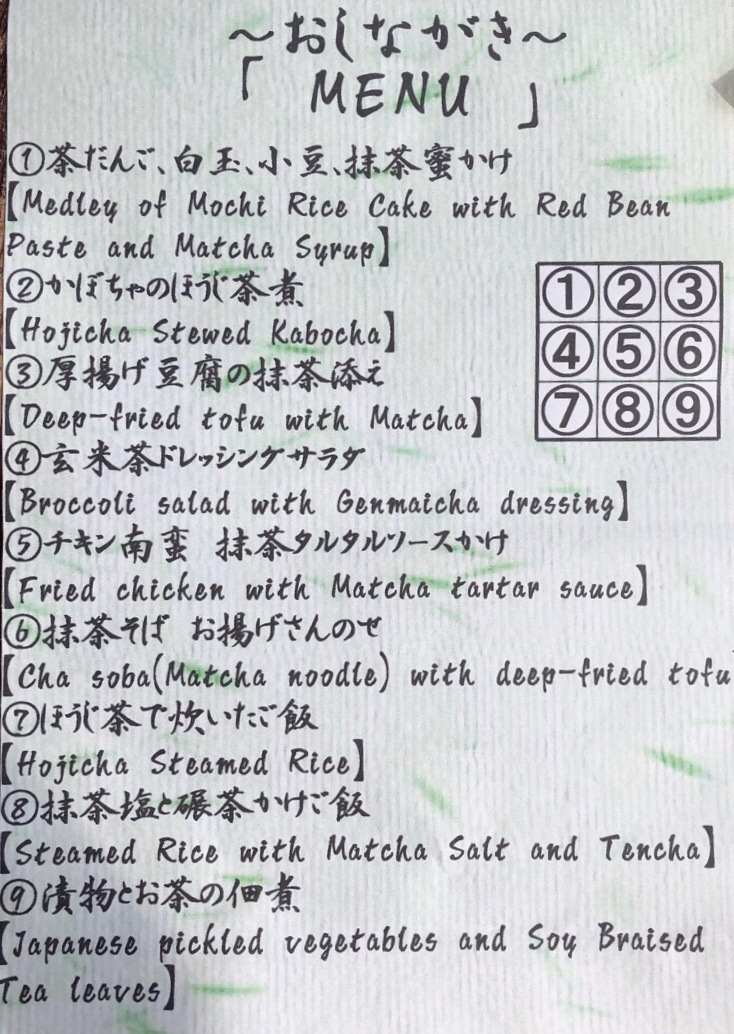 ～おしながき～
「 MENU 」
①茶だんご、白玉、小豆、抹茶蜜かけ
【Medley of Mochi Rice Cake with Red Bean
Paste and Matcha Syrup】
②かぼちゃのほうじ茶煮
【Hojicha Stewed Kabocha】
③厚揚げ豆腐の抹茶添え
【Deep-fried tofu with Matcha】
④玄米茶ドレッシングサラダ
【Broccoli salad with Genmaicha dressing】
⑤チキン南蛮 抹茶タルタルソースかけ
【Fried chicken with Matcha tartar sauce】
⑥抹茶そば お揚げさんのせ
【Cha soba(Matcha noodle) with deep-fried tofu
⑦ほうじ茶で炊いたご飯
【Hojicha Steamed Rice】
⑧抹茶塩と碾茶かけご飯
【Steamed Rice with Matcha Salt and Tencha】
⑨漬物とお茶の佃煮
【Japanese pickled vegetables and Soy Braised
Tea leaves】
①②③
④⑤⑥
⑦⑧⑨